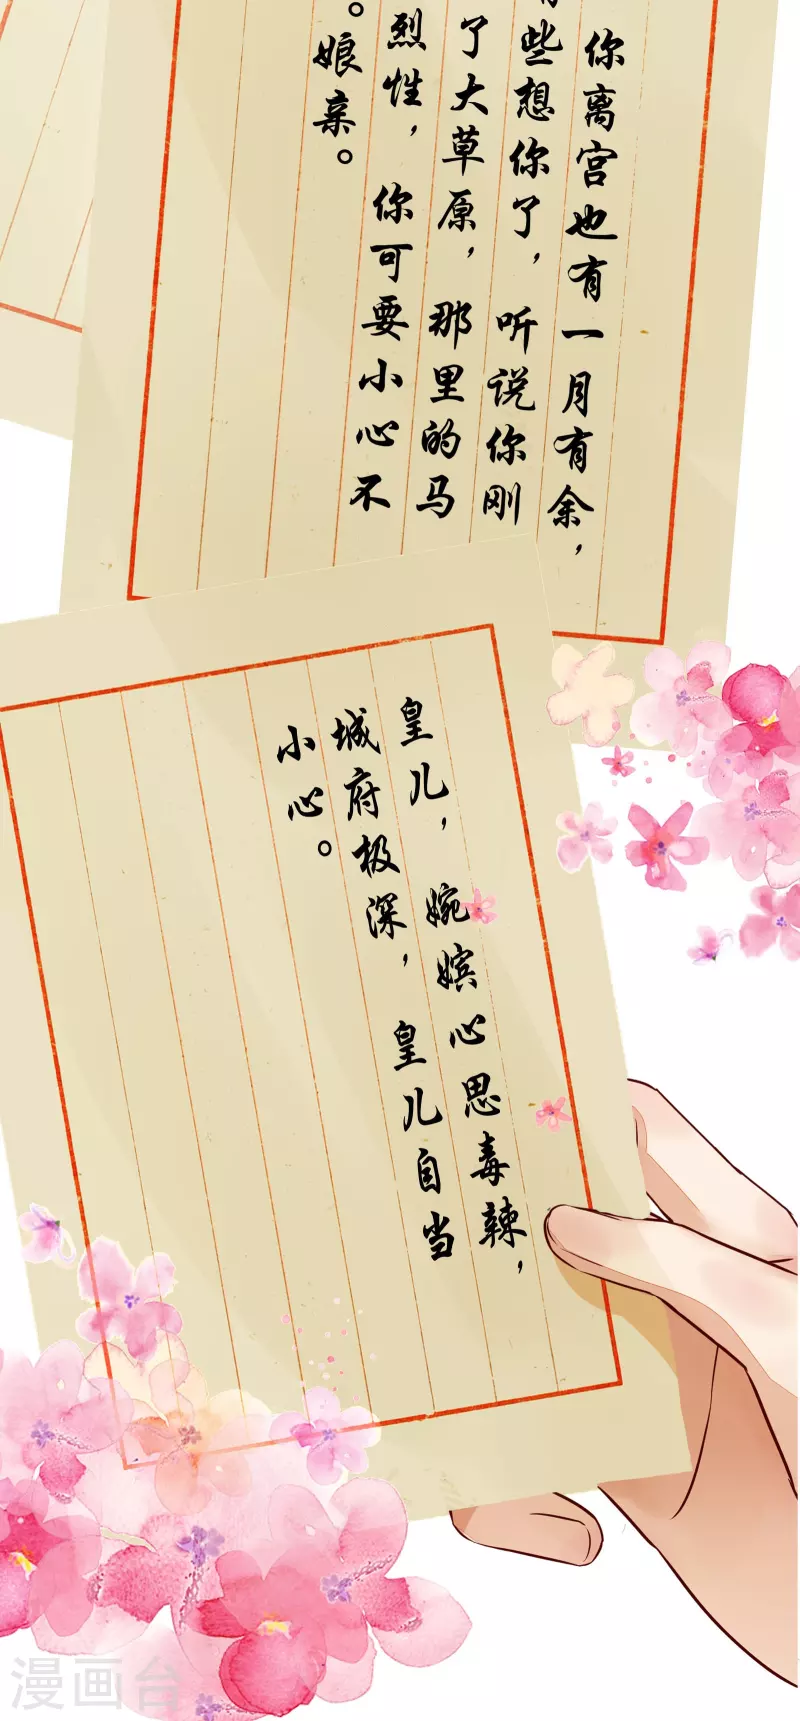 你离宫也有一月有余，
些想你了，听说你刚
了大草原，那里的马
烈性，你可要小心不
。娘亲。
皇儿，婉嫔心思毒辣，
城府极深，皇儿自当
小心。
漫画台